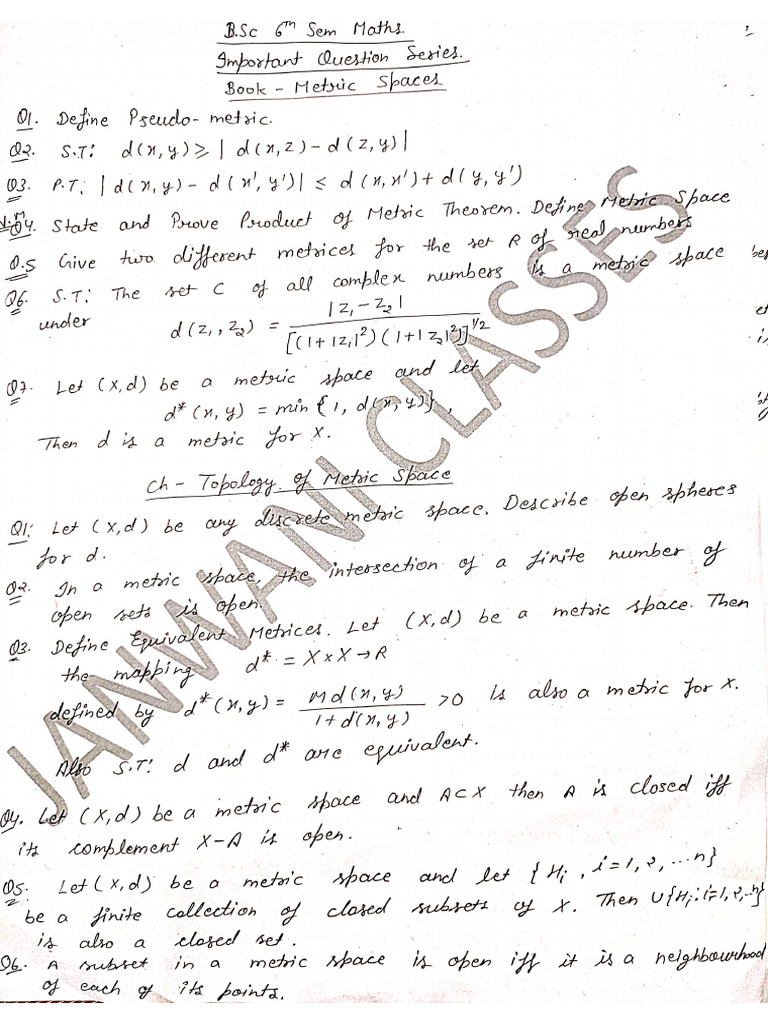 B.Sc 6th Sem Maths.
Important Question Series.
Book - Metric Spaces
Q1. Define Pseudo-metric.
Q2. S.T: d(x,y) ≥ | d(x,z) - d(z,y) |
Q3. P.T: | d(x,y) - d(x',y') | ≤ d(x,x') + d(y,y')
Q4. State and Prove Product of Metric Theorem. Define Metric Space
Q.5 Give two different metrices for the set R of real numbers
Q6. S.T: The set C of all complex numbers is a metric space
under d(z₁, z₂) = |z₁ - z₂| / [(1+|z₁|²)(1+|z₂|²)]^1/2
Q7. Let (X,d) be a metric space and let
d*(x,y) = min{1, d(x,y)},
Then d is a metric for X.
Ch - Topology of Metric Space
Q1: Let (X,d) be any discrete metric space. Describe open spheres
for d.
Q2. In a metric space, the intersection of a finite number of
open sets is open.
Q3. Define Equivalent Metrices. Let (X,d) be a metric space. Then
the mapping d* = X×X→R
defined by d*(x,y) = M d(x,y) / 1+d(x,y) >0 is also a metric for X.
Also S.T: d and d* are equivalent.
Q4. Let (X,d) be a metric space and A⊂X then A is closed iff
its complement X-A is open.
Q5. Let (X,d) be a metric space and let {Hi, i=1,2,...n}
be a finite collection of closed subsets of X. Then U{Hi: i=1,2,..n}
is also a closed set.
Q6. A subset in a metric space is open iff it is a neighbourhood
of each of its points.
JANWANI CLASSES